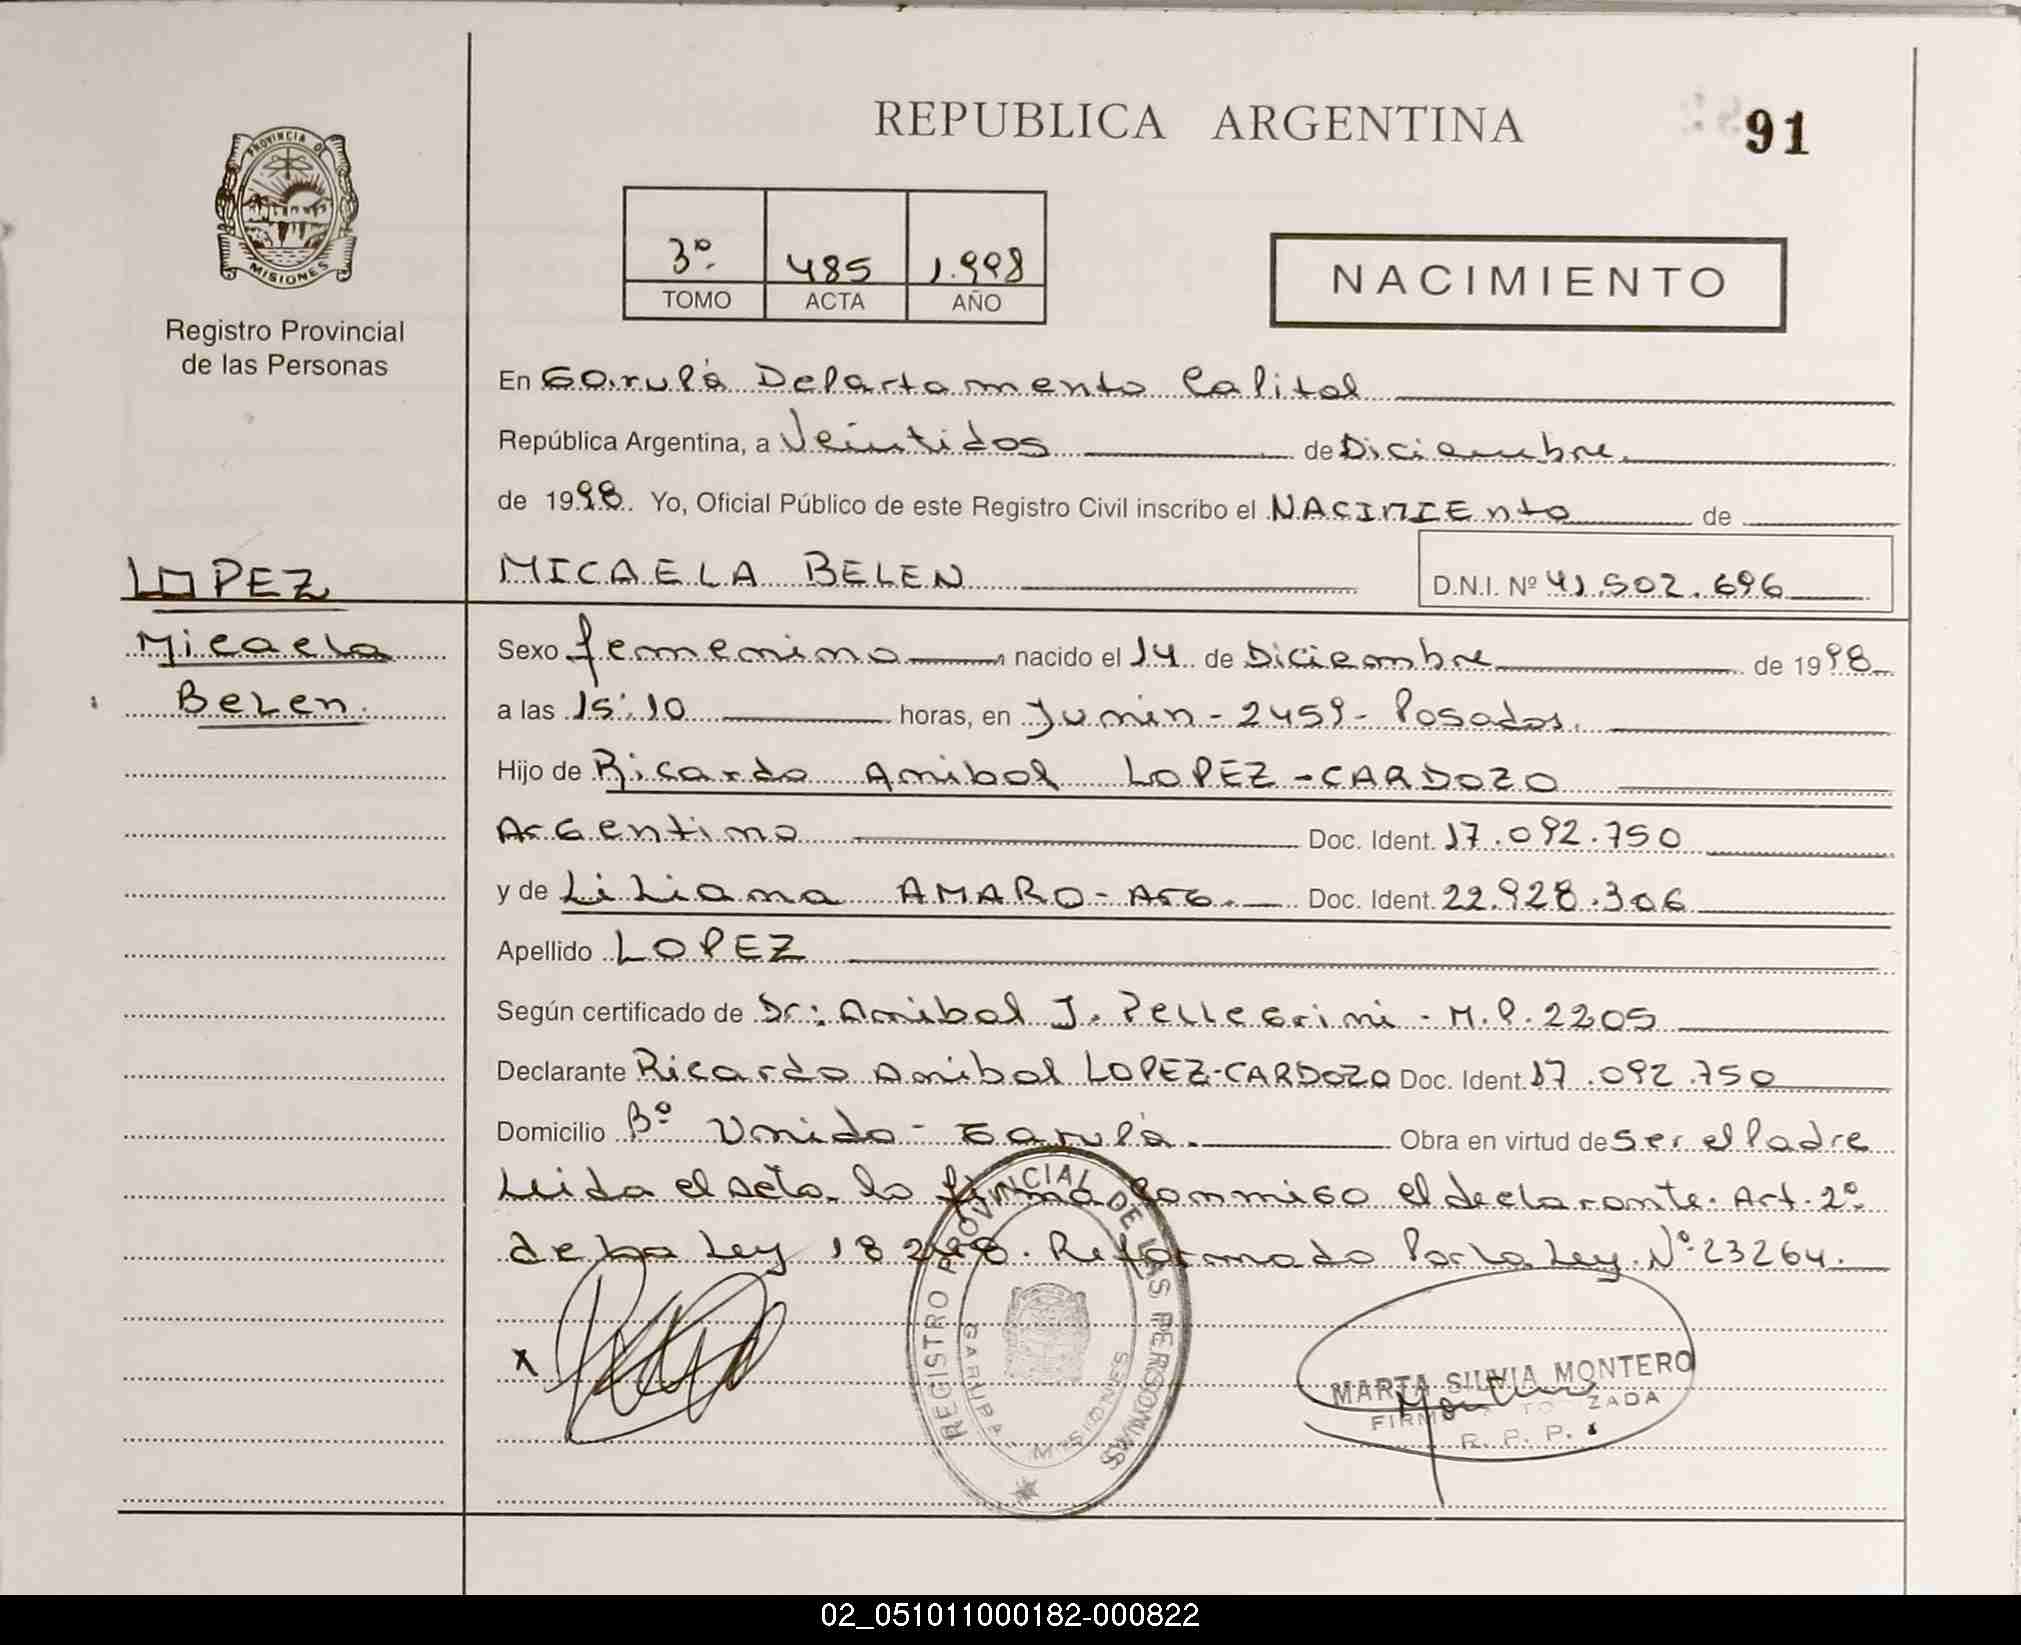 REPUBLICA ARGENTINA
91
PROVINCIA DE
MISIONES
Registro Provincial
de las Personas
3º 485 1.998
TOMO ACTA AÑO
NACIMIENTO
En Garupá Departamento Capital
República Argentina, a Veintidos de Diciembre.
de 1998. Yo, Oficial Público de este Registro Civil inscribo el NACIMIENto de
LOPEZ
Micaela
Belen.
MICAELA BELEN
D.N.I. Nº 41.502.696
Sexo femenino nacido el 14 de Diciembre de 1998
a las 15:10 horas, en Junin - 2459 - Posadas.
Hijo de Ricardo Anibal LOPEZ-CARDOZO
Argentino Doc. Ident. 17.092.750
y de Liliana AMARO - Arg. Doc. Ident. 22.928.306
Apellido LOPEZ
Según certificado de Dr: Anibal J. Pellegrini - M.P. 2205
Declarante Ricardo Anibal LOPEZ-CARDOZO Doc. Ident. 17.092.750
Domicilio Bº Unido - Garupá. Obra en virtud de ser el Padre
Leida el acta. la firma conmigo el declarante. Art. 2º
de la Ley 18248. Reformado Por la Ley. Nº 23264.
x
REGISTRO PROVINCIAL DE LAS PERSONAS
GARUPA MISIONES
MARTA SILVIA MONTERO
R. P. P.
02_051011000182-000822